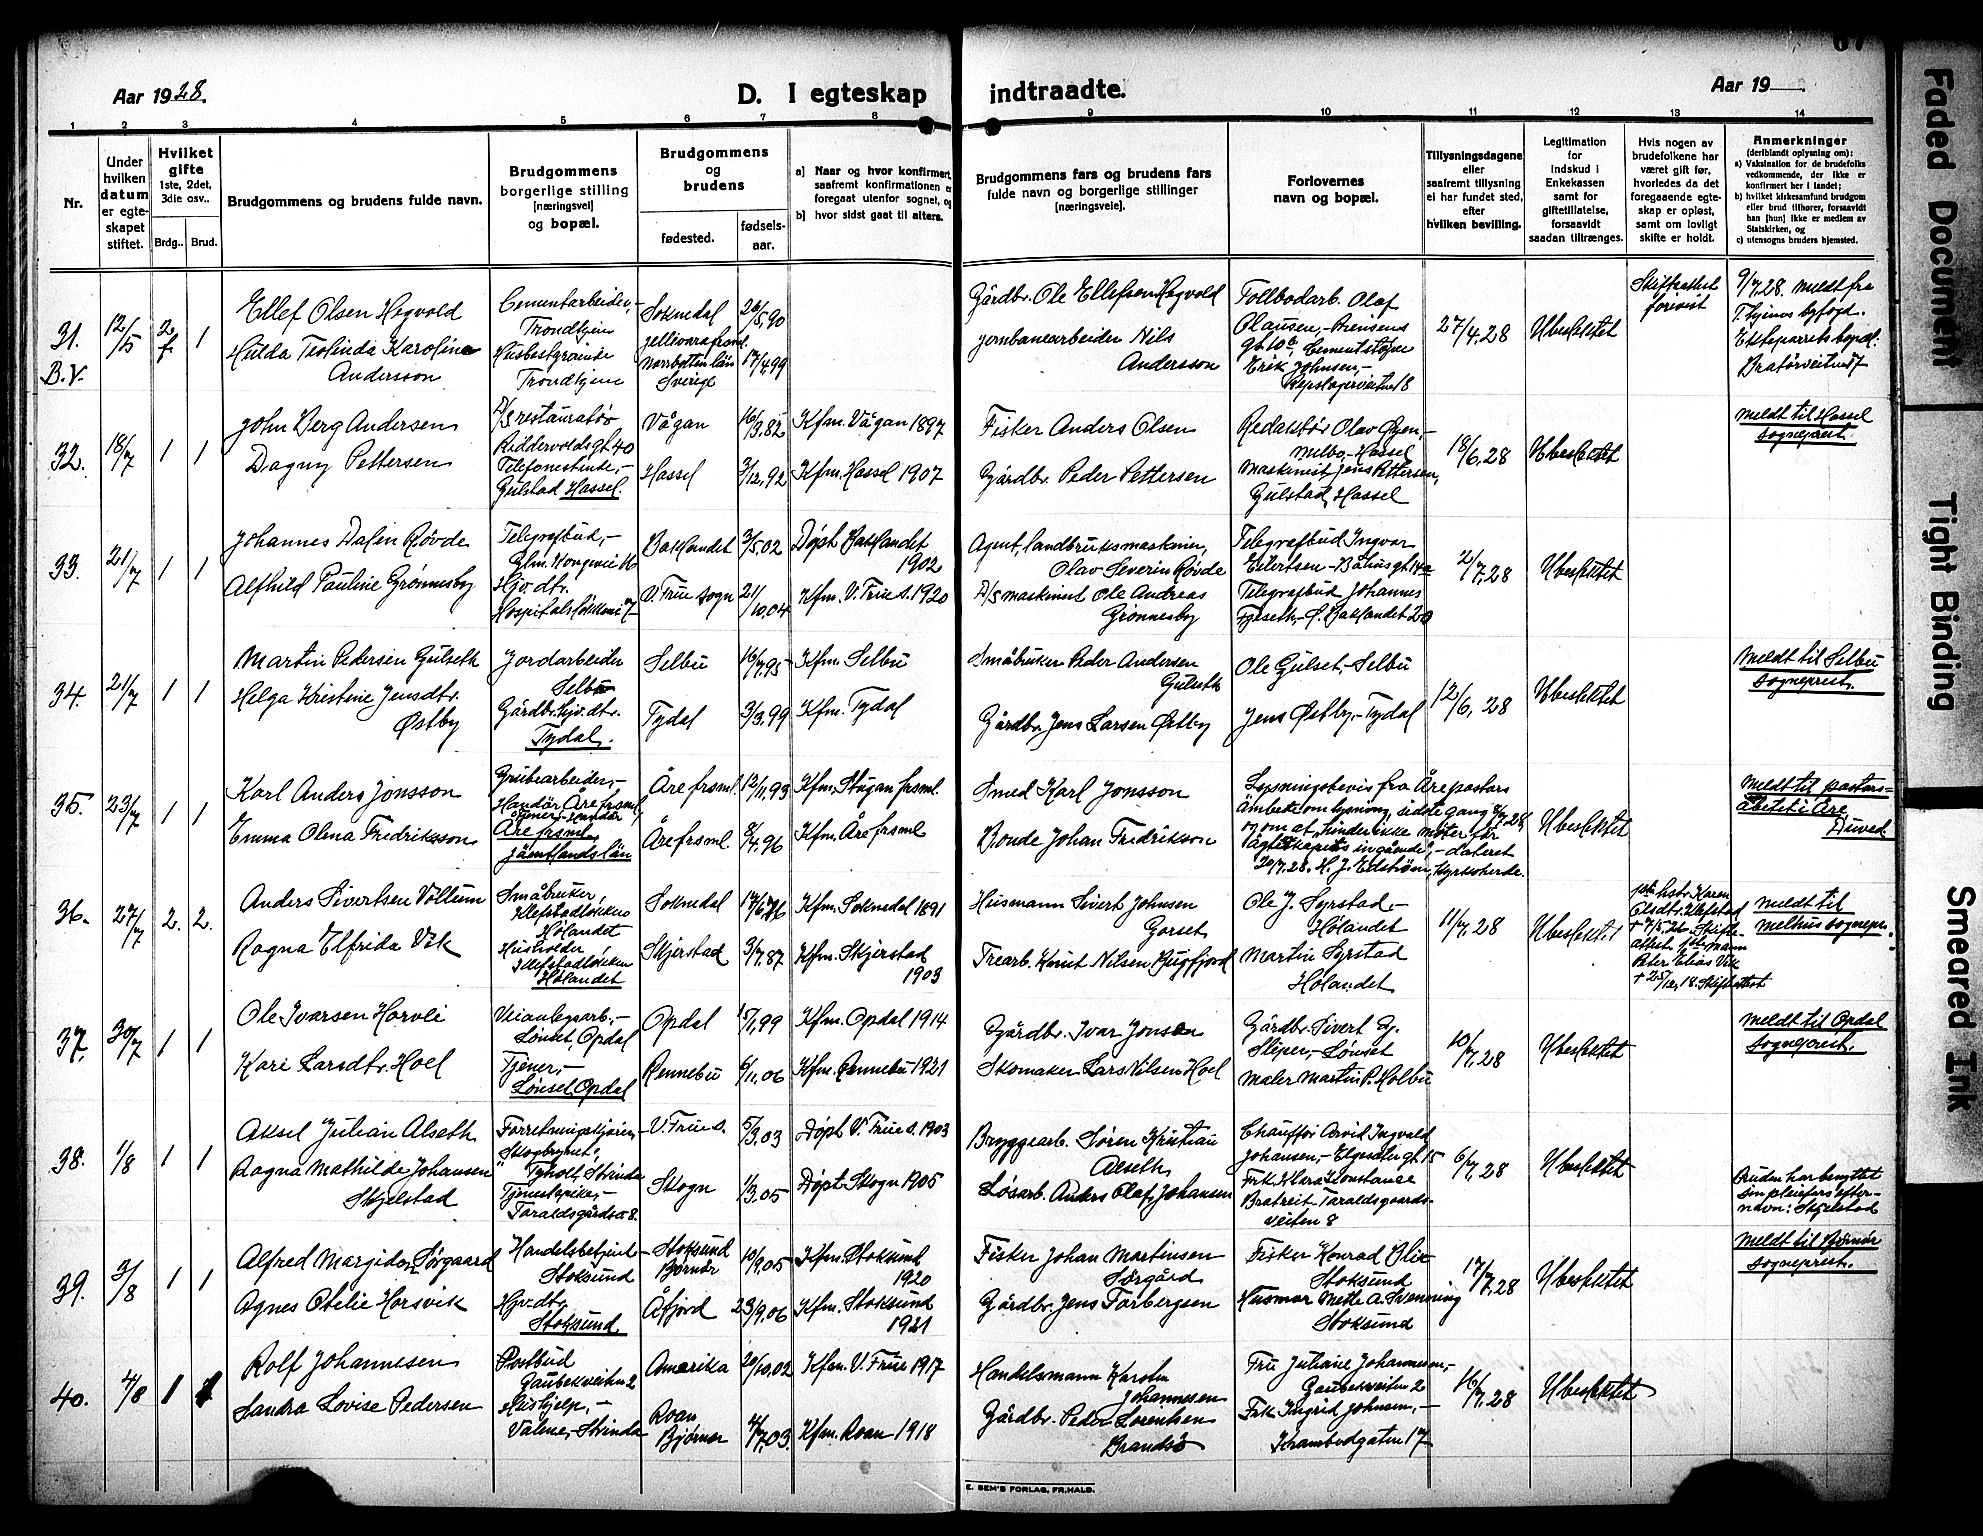 Aar 1928.
D. I egteskap indtraadte.
Aar 19
1 2 3 4 5 6 7 8 9 10 11 12 13 14
Nr.
Under hvilken datum er egteskapet stiftet.
Hvilket gifte 1ste, 2det, 3die osv..
Brdg.. Brud.
Brudgommens og brudens fulde navn.
Brudgommens borgerlige stilling [næringsvei] og bopæl.
Brudgommens og brudens
fødested.
fødsels-aar.
a) Naar og hvor konfirmert, saafremt konfirmationen er foregaat utenfor sognet, og
b) hvor sidst gaat til alters.
Brudgommens fars og brudens fars fulde navn og borgerlige stillinger [næringsveie].
Forlovernes navn og bopæl.
Tillysningsdagene eller saafremt tillysning ei har fundet sted, efter hvilken bevilling.
Legitimation for indskud i Enkekassen samt for giftetillatelse, forsaavidt saadan tiltrænges.
Hvis nogen av brudefolkene har været gift før, hvorledes da det foregaaende egteskap er opløst, samt om lovligt skifte er holdt.
Anmerkninger (deriblandt oplysning om):
a) Vaksination for de brudefolks vedkommende, der ikke er konfirmert her i landet;
b) hvilket kirkesamfund brudgom eller brud tilhører, forsaavidt han [hun] ikke er medlem av Statskirken, og
c) utensogns bruders hjemsted.
31. B.V.
12/5
2 f. 1
Ellef Olsen Hogvold
Hulda Teolinda Karoline
Andersson
Cementarbeider,-
Trondhjem
Husbestyrerinde
Trondhjem
Soknedal
Jellivara frsml.
Norrbotten län
Sverige
26/5.90
17/4.99
Gårdbr. Ole Ellefsen Hogvold
Jernbanearbeider Nils
Andersson
Tollbodarb. Olaf
Olausen,-
gt. 10a, Cementstøper
Erik Johnsen,-
Repslagerveiten 8
27/4.28
Ubeslektet
Skifteattest
forevist
9/7.28. meldt fra
T.hjems byfogd.
Ekteparrets bopel:
Bratørveiten 7
32.
18/7
1 1
John Berg Andersen
Dagny Pettersen
D/S restauratør
Riddervoldsgt. 40
Telefonistinde,-
Gulstad Hassel.
Vågan
Hassel
16/3.82
3/12.92
Kfm. Vågan 1897
Kfm. Hassel 1907
Fisker Anders Olsen
Gårdbr. Peder Pettersen
Redaktør Olav Øyen,-
Melbo,-Hassel
Maskinist Jens Pettersen,
Gulstad, Hassel
18/6.28
Ubeslektet
Meldt til Hassel
sogneprest.
33.
21/7
1 1
Johannes Dalen Røvde
Alfhild Pauline Grønnesby
Telegrafbud,-
Glm. Kongevei 16
Hjv. dtr.
Hospitalsløkken 7
Baklandet
V. Frue sogn
3/5.02
21/10.04
Døpt Baklandet
1902
Kfm. V. Frue s. 1920
Agent, landbruksmaskiner,
Olav Severin Røvde
D/S maskinist Ole Andreas
Grønnesby
Telegrafbud Ingvar
Eilertsen - Båhusgt. 14a
Telegrafbud Johannes
Fjeseth,- Ø. Baklandet 20
2/7.28
Ubeslektet
34.
21/7
1 1
Martin Pedersen Gulseth
Helga Kristine Jensdtr.
Østby
Jordarbeider
Selbu
Gårdbr. hjv. dtr.
Tydal.
Selbu
Tydal
16/7.95
3/3.99
Kfm. Selbu
Kfm. Tydal
Småbruker Peder Andersen
Gulseth
Gårdbr. Jens Larsen Østby
Ole Gulset,-Selbu
Jens Østby,-Tydal
12/6.28
Ubeslektet
Meldt til Selbu
sogneprest.
35.
23/7
1 1
Karl Anders Jonsson
Emma Olena Fredriksson
Grubearbeider,-
Handør Åre frsml.
Tjener,- Handør
Åre frsml.
Jämtlands län
Åre frsml.
Åre frsml.
12/11.93
8/4.96
Kfm. Stugun frsml.
Kfm. Åre frsml
Smed Karl Jonsson
Bonde Johan Fredrikson
Lysningsbevis fra Åre pastors
ämbete om lysning, sidste gang 8/7.28,
og om at "hinder ikke møter för
ägteskapets ingående",- dateret
20/7.28. H. J. Edström, kyrkoherde.
Ubeslektet
Meldt til pastors=
ämbetet i Åre
Duved
36.
27/7
2. 2.
Anders Sivertsen Vollum
Ragna Elfrida Vik
Småbruker,
Klefstadløkken
Hølandet
Husholder,
Klefstadløkken
Hølandet
Soknedal
Skjerstad
17/6.76
3/7.87
Kfm. Soknedal 1891
Kfm. Skjerstad
1903
Husmann Sivert Johnsen
Gorset
Trearb. Knut Nilsen Rugfjord
Ole J. Syrstad -
Hølandet
Martin Syrstad
Hølandet
11/7.28
Ubeslektet
Olsdtr. Klefstad
Peter Elias Vik
† 25/12.18. Skifteattest
Meldt til
Melhus sognepr.
37.
30/7
1 1
Ole Ivarsen Horvli
Kari Larsdtr. Hoel
Veianlegsarb.,-
Lønset, Opdal
Tjener,-
Lønset, Opdal
Opdal
Rennebu
15/1.99
6/11.06
Kfm. Opdal 1914
Kfm. Rennebu 1921
Gårdbr. Ivar Jonsen
Skomaker Lars Nilsen Hoel
Gårdbr. Sivert G.
Sliper,-Lønset
Maler Martin P. Holbu
10/7.28
Ubeslektet
Meldt til Opdal
sogneprest.
38.
1/8
1 1
Aksel Julian Alseth
Ragna Mathilde Johansen
Skjelstad
Tyholt, Strinda
Tjenestepike,-
Taraldsgårdsv. 8.
V. Frue s.
Skogn
5/3.03
1/3.05
Døpt V. Frue s. 1903
Døpt Skogn 1905
Bryggearb. Søren Kristian
Alseth
Løsarb. Anders Olaf Johansen
Chauffør Arvid Ingvald
Johansen,- Elgesetergt. 15
Frk. Klara Konstanse
Bratreit - Taraldsgaards-
veiten 8
6/7.28
Ubeslektet
Bruden har benyttet
sin pleiefars efter-
navn: Skjelstad
39.
3/8
1 1
Alfred Margido Sørgaard
Agnes Otelie Horsvik
Handelsbetjent -
Stoksund
Hjv. dtr.
Stoksund
Stoksund
Bjørnør
Åfjord
10/9.05
23/9.06
Kfm. Stoksund
1920
Kfm. Stoksund
1921
Fisker Johan Martinsen
Sørgård
Gårdbr. Jens Torbergsen
Fisker Konrad Blix
Stoksund
Husmor Mette A. Svenning
Stoksund
17/7.28
Ubeslektet
Meldt til Bjørnør
sogneprest.
40.
4/8
1 1
Rolf Johannesen
Sandra Lovise Pedersen
Postbud
Gaubekveiten 2
Hushjelp,-
Valene,-Strinda
Amerika
Roan
Bjørnør
20/10.02
4/7.03.
Kfm. V. Frue 1917
Kfm. Roan 1918
Handelsmann Karolin
Johannesen
Gårdbr. Peder Lorentsen
Brandsø
Fru Juliane Johannesen,-
Gaubekveiten 2
Frk. Ingrid Johnsen,-
Krambodgaten 17
16/7.28
Ubeslektet
E. SEM'S FORLAG, FR.HALD.
Faded Document
Tight Binding
Smeared Ink